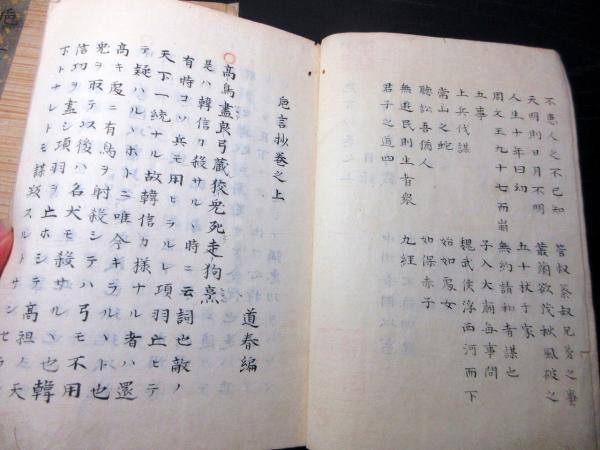 不患人之不已知
管叔蔡叔兄弟之事
天明則日月不明
叢蘭欲茂秋風破之
人生十年曰幼
五十杖于家
周文王九十七而崩
無約請和者謀也
五事
子入大廟毎事問
上兵伐謀
魏武侯浮西河而下
常山之蛇
始如處女
聴訟吾猶人
如保赤子
無遊民則生者衆
九経
君子之道四
巵言抄巻之上
道春編
○高鳥盡良弓藏狡兎死走狗烹
是ハ韓信カ殺サルヽ時ニ云詞也敵ノ
有時コソ兵モ用ヒラルレ項羽亡ヒテ
天下一統ナル故韓信カ様ナル者ハ還
テ疑ハルヽホトニ唯今キラルヽト也
高キ處ニ有鳥ヲ射殺シテハ弓モ不用
兎ヲ取テ後ハ名犬モ殺サルヽ也韓
信功ヲ盡シ項羽ヲ亡ホシテ高祖ノ天
下トナレトモ謀叛スルトサンセラ